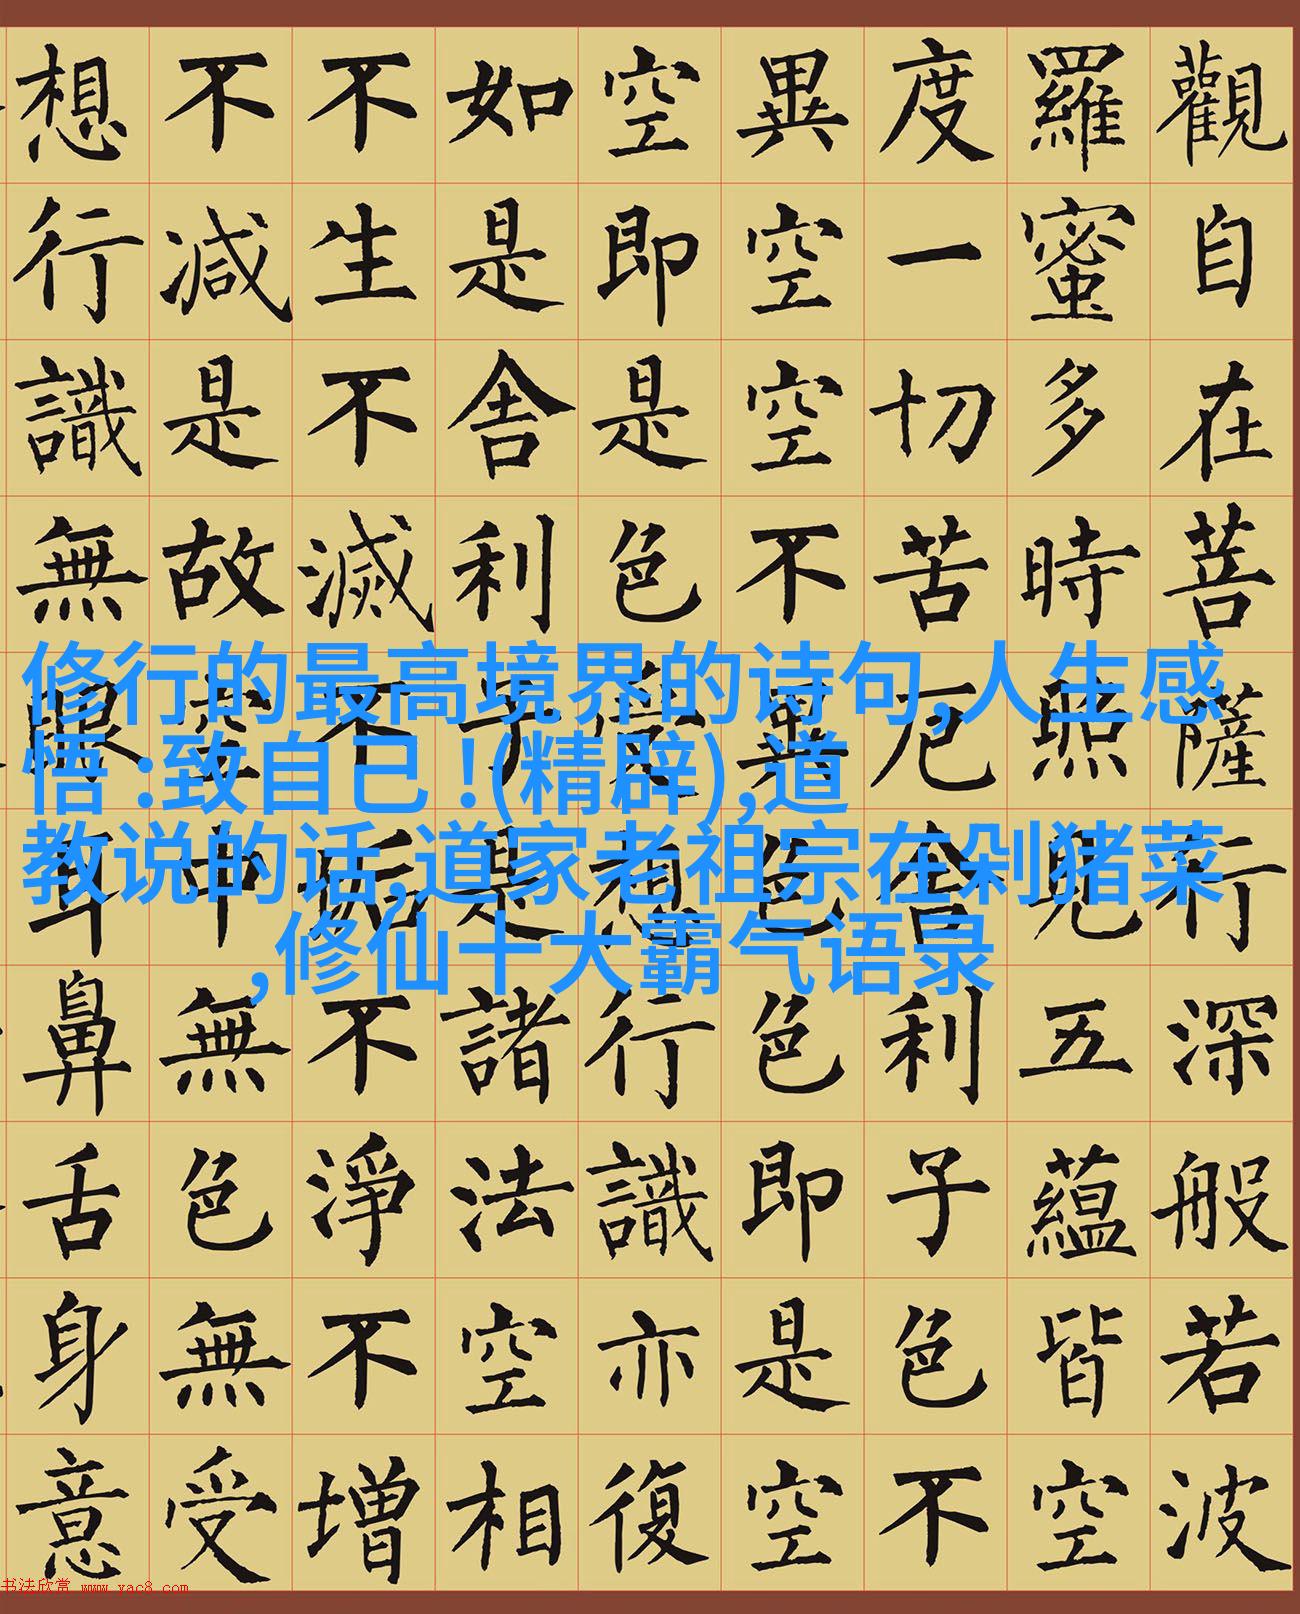 觀自在菩薩行深般若波
羅蜜多時照見五蘊皆空
度一切苦厄舍利子色不
異空空不異色色即是空
空即是色受想行識亦復
如是舍利子是諸法空相
不生不滅不垢不淨不增
不減是故空中無色無受
想行識無眼耳鼻舌身意
修行的最高境界的诗句,人生感
悟 :致自己 !(精辟),道
教说的话,道家老祖宗在剁猪菜
,修仙十大霸气语录
书法欣赏 www.yac8.com